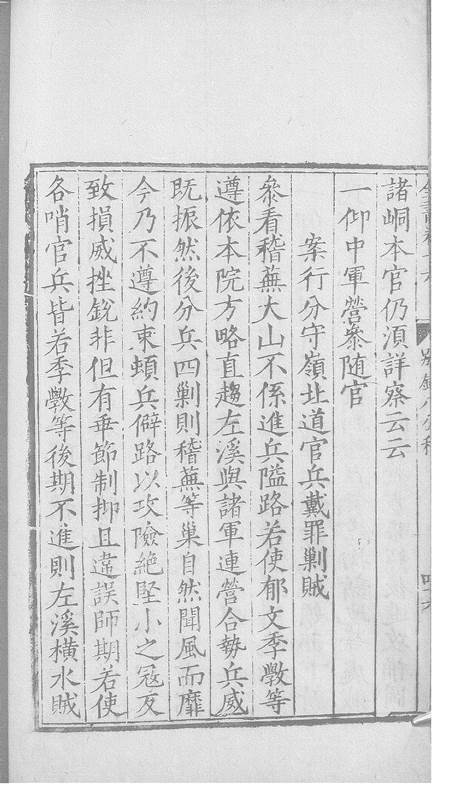 諸峒本官仍須詳察云云
一仰中軍營叅随官
案行分守嶺北道官兵戴罪剿賊
叅看稽蕪大山不係進兵隘路若使郁文季斆等
遵依本院方略直趨左溪與諸軍連營合勢兵威
既振然後分兵四剿則稽蕪等巢自然聞風而靡
今乃不遵約束頓兵僻路以攻險絶堅小之冦反
致損威挫銳非但有乖節制抑且違誤師期若使
各哨官兵皆若季斆等後期不進則左溪横水賊